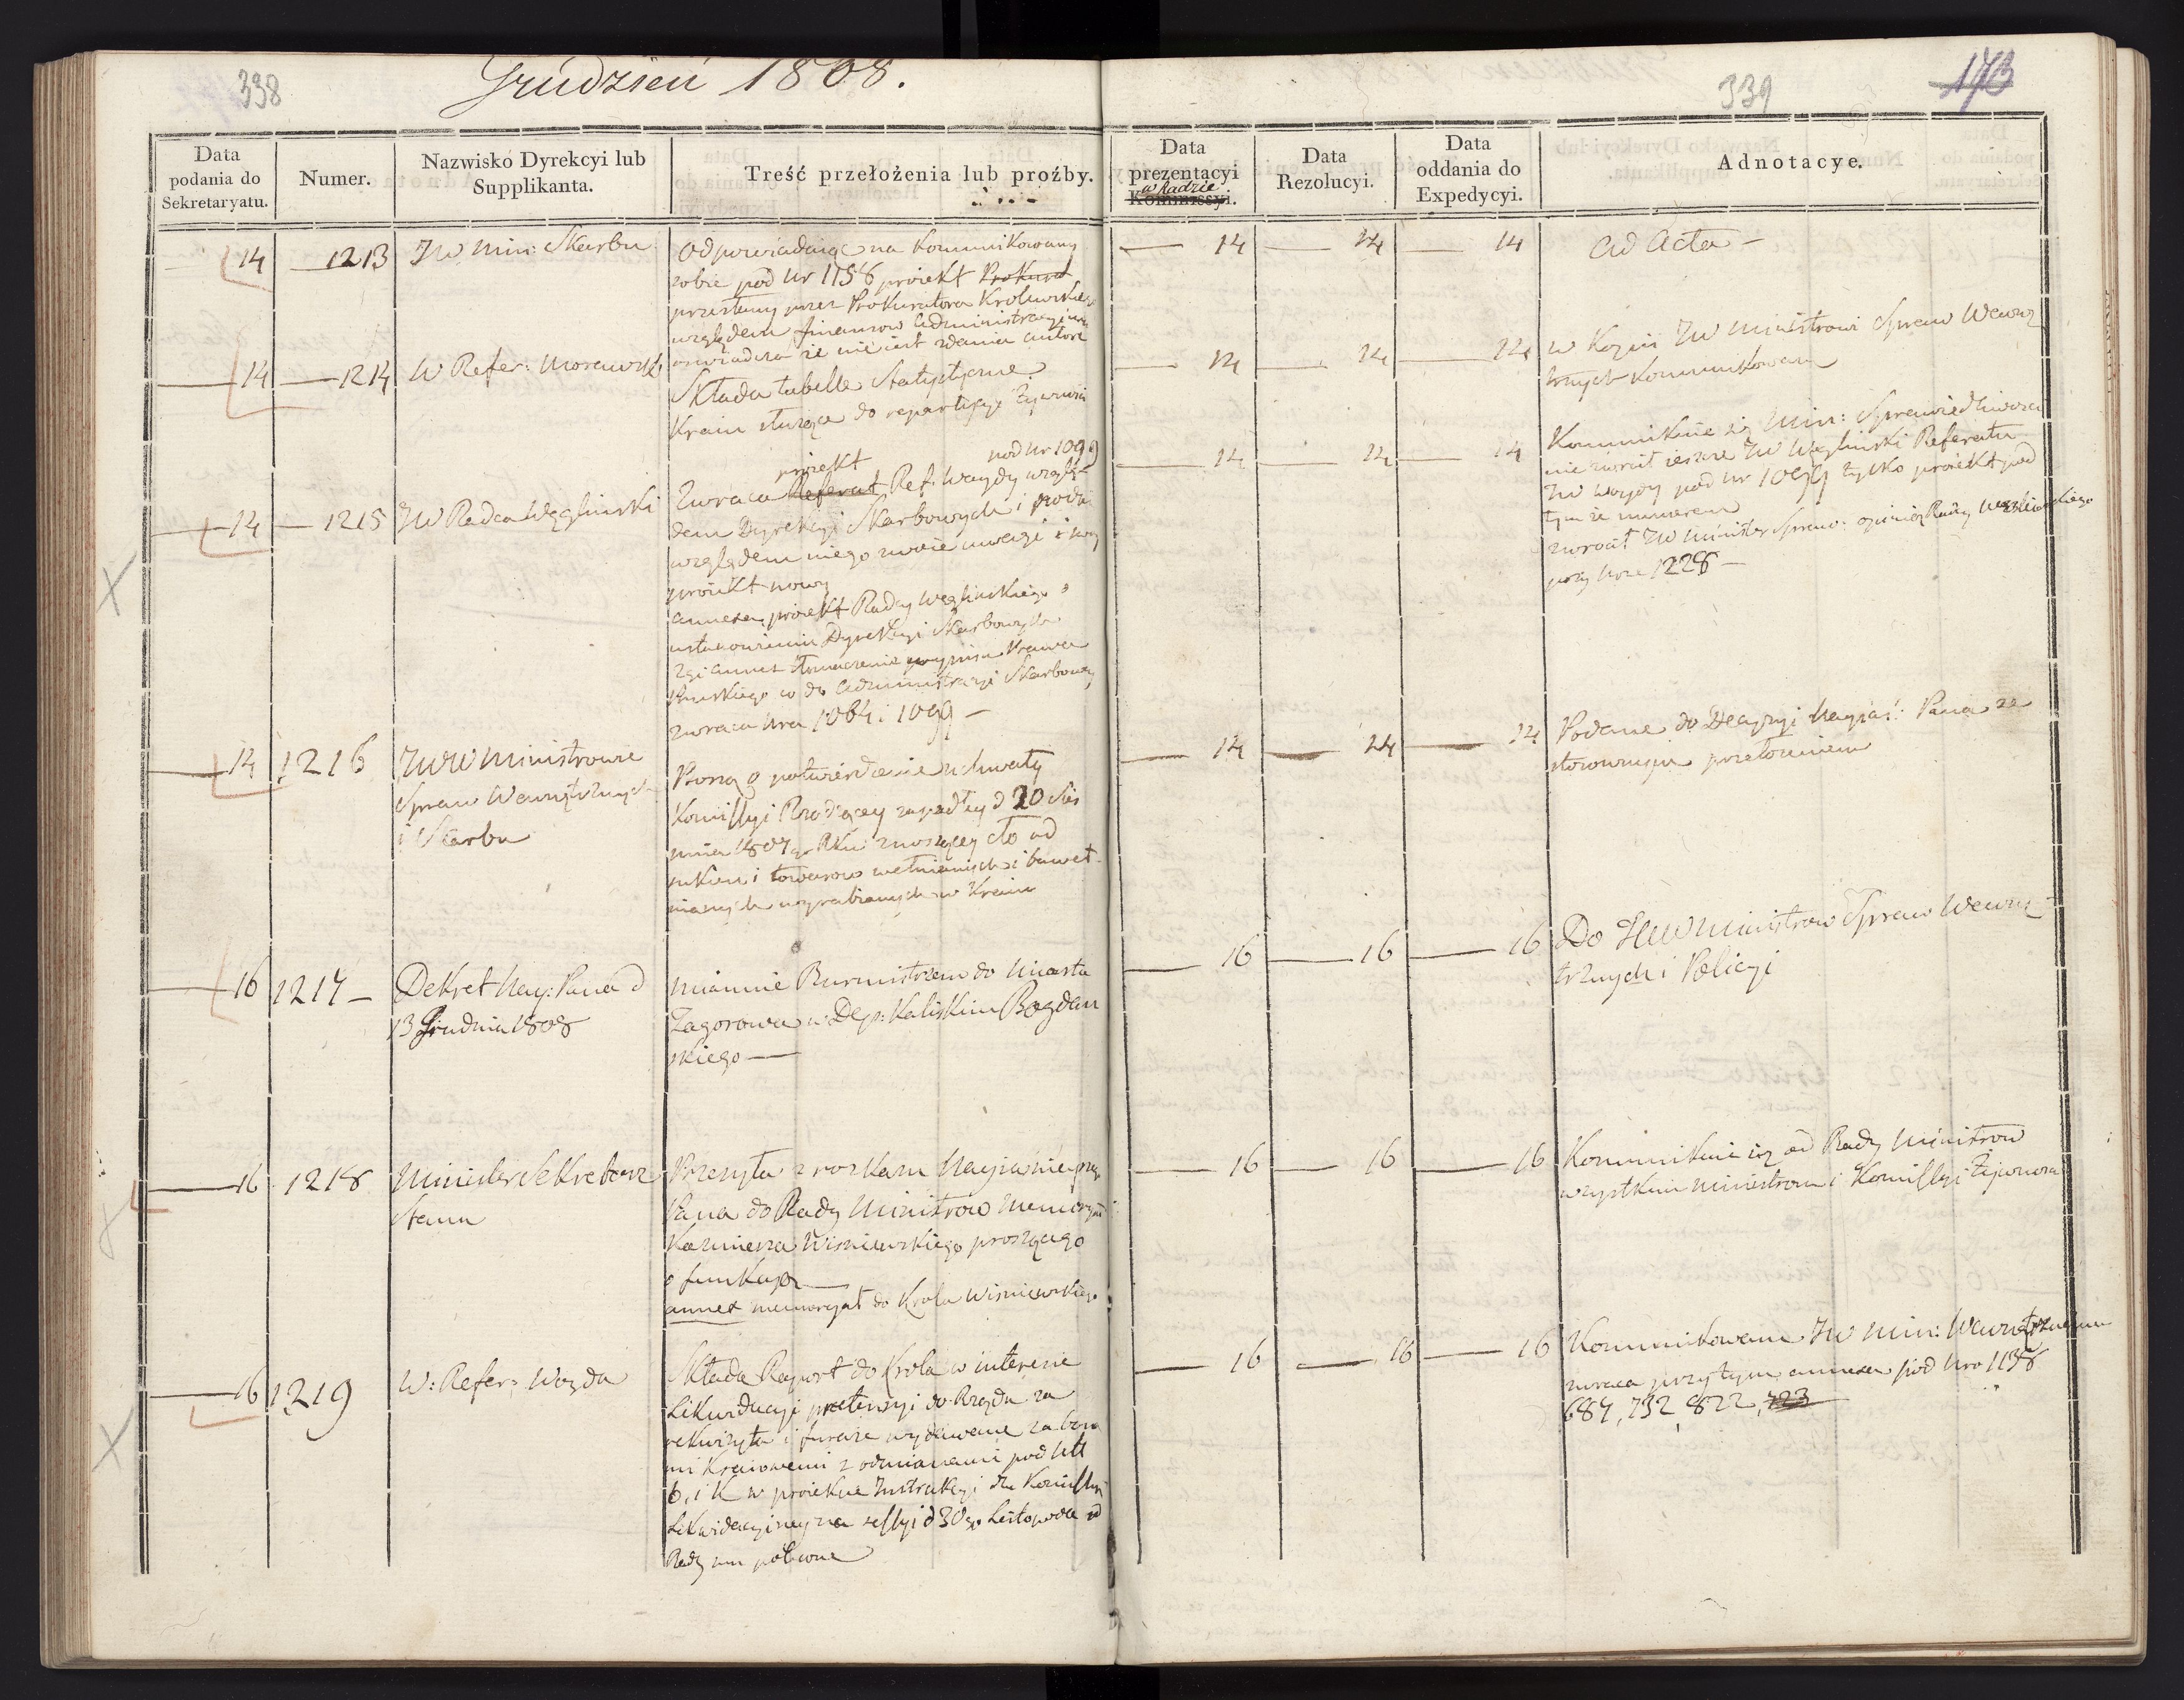 338
Grudzień 1808.
339
173
Data podania do Sekretaryatu.
Numer.
Nazwisko Dyrekcyi lub Supplikanta.
Treść przełożenia lub proźby.
Data prezentacyi Kommissyi.
w Radzie
Data Rezolucyi.
Data oddania do Expedycyi.
Adnotacye.
14 1213 JW Min: Skarbu
Odpowiadaiąc na kommunikowany
sobie pod Nr 1158 proiekt Prokurat
przesłany przez Prokuratora Krolewskiego
względem finansow administracyi
oswiadcza że nie iest zdania autora
14 14 14 Ad Acta
14 1214 W Refer: Morawski
Składa tabelle statystyczne
Kraiu służące do repartycyi żywności
14 14 14 w Kopii JW Ministrowi Spraw Wewnę
trznych kommunikowane
14 1215 JW Radca Węgliński
proiekt pod Nr 1099
Zwraca Referat Ref: Woydy wzglę
dem Dyrekcyi Skarbowych i podaie
względem niego swoie uwagi i swoy
proiekt nowy
annexa, proiekt Radcy Węglińskiego o
ustanowieniu Dyrekcyi Skarbowych
2gi annex tłomaczenie wypisu Prawa
Pruskiego co do administracyi Skarbowey
zwraca Nra 1084 i 1099
14 14 14 Kommunikuie się Min: Sprawiedliwości
nie zwrócił ieszcze JW Węgliński Referatu
JW Woydy pod Nr 1099 tylko proiekt pod
tym że numerem
zwrocił JW Minister Spraw: opinią Radcy Węglińskiego
przy Nrze 1228
14 1216 JWW Ministrowie
Spraw Wewnętrznych
i Skarbu
Proszą o potwierdzenie uchwały
Kommissyi Rządzącey zapadłey d 20 Sier
pnia 1807go Rku znoszącey cło od
sukien i towarow wełnianych i baweł
nianych wyrabianych w Kraiu
14 14 14 Podane do Decyzyi Nayiaś: Pana ze
stosownym przełożeniem
16 1217 Dekret Nay: Pana d
13 Grudnia 1808
mianuie Burmistrzem do Miasta
Zagorowa w Dep: Kaliskim Bogdań
skiego
16 16 16 Do JWW Ministrow Spraw Wewnę
trznych i Policyi
16 1218 Minister Sekretarz
Stanu
Przesyła z rozkazu Nayiaśnieyszego
Pana do Rady Ministrow memoryał
Kazimierza Wiśniewskiego proszącego
o funkcyą
annex memoryał do Krola Wiśniewskiego
16 16 16 Kommunikuie się od Rady Ministrow
wszystkim Ministrom i Kommissyi Żywności
16 1219 W: Refer: Woyda
Składa Raport do Krola w interesie
Likwidacyi pretensyi do Rządu za
rekwizyta i furaże wydawane za bona
mi kraiowemi z odmianami pod litt
b, i K w proiekcie Instrukcyi dla Kommissyi
Likwidacyiney na sessyi d 30go Listopada od
Rady mu polecone
16 16 16 Kommunikowane JW Min: Wewnętrznemu
zwraca przy tym annexa pod Nro 1138
687, 732, 822, 723